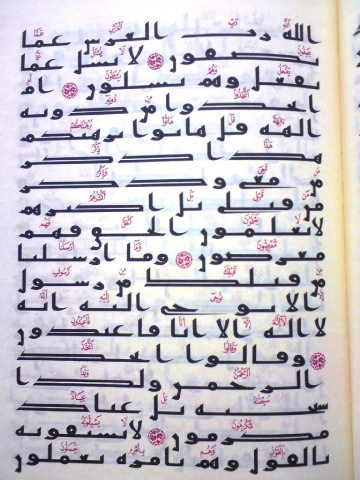 الله رب العرش عما
يصفون لا يسل عما
يفعل وهم يسلون ام
اتخذوا من دونه
الهه قل هاتوا برهنكم
هذا ذكر
من معي وذكر
من قبلي بل اكثرهم
لا يعلمون الحق فهم
معرضون وما ارسلنا
من قبلك من رسول
الا نوحي اليه انه
لا اله الا انا فاعبدون
وقالوا اتخذ
الرحمن ولدا
سبحنه بل عباد
مكرمون لا يسبقونه
بالقول وهم بامره يعملون